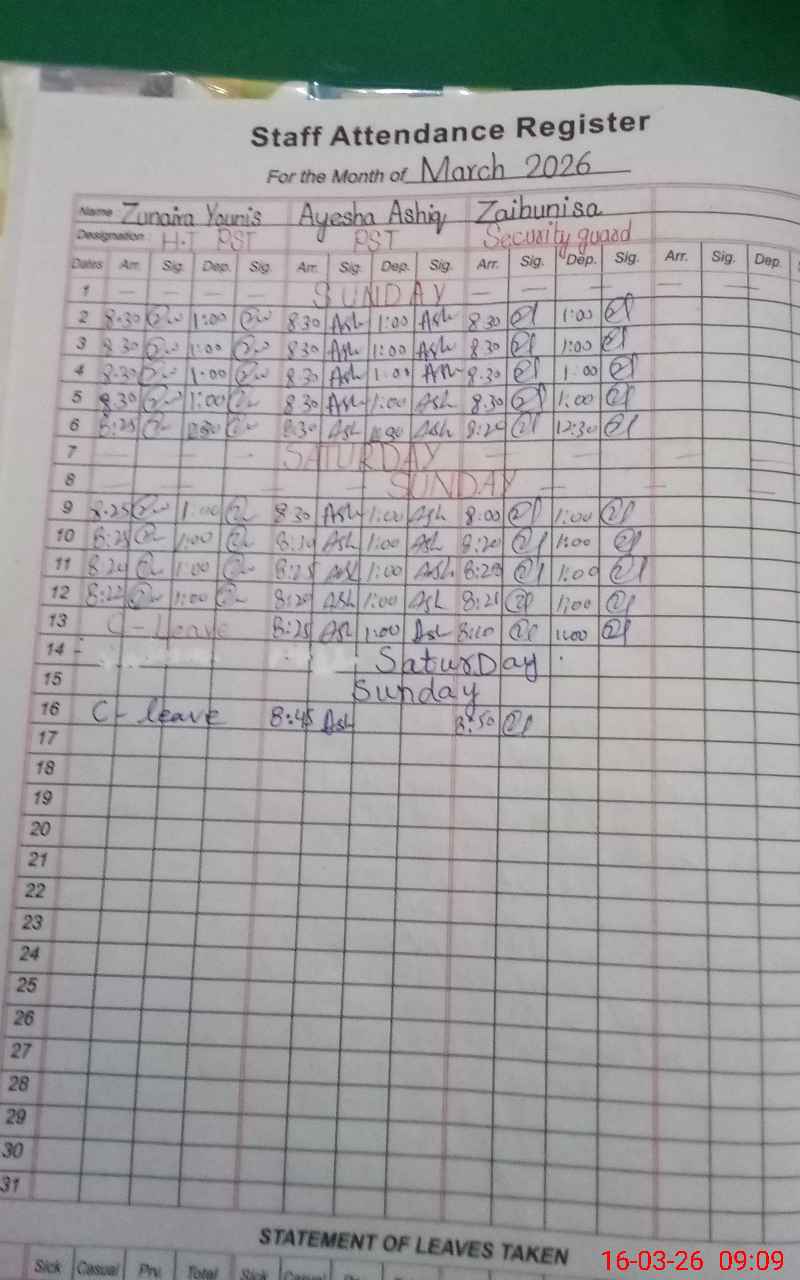 Staff Attendance Register
For the Month of March 2026
Name Zunaira Younis Ayesha Ashiq Zaibunisa
Designation: H.T PST PST Security guard
Dates Arr. Sig. Dep. Sig. Arr. Sig. Dep. Sig. Arr. Sig. Dep. Sig. Arr. Sig. Dep.
1 SUNDAY
2 8.30 1:00 8 30 Ash 1:00 Ash 8 30 1:00
3 8 30 1:00 8 30 Ash 1:00 Ash 8 30 1:00
4 8.30 1.00 8 30 Ash 1.00 Ash 8.30 1.00
5 8.30 1:00 8 30 Ash 1:00 Ash 8.30 1.00
6 8:25 8:30 Ash Ash 8:20 12:30
7 SATURDAY
8 SUNDAY
9 8.25 1:00 8 30 Ash 1:00 Ash 8:00 1:00
10 8:25 1:00 Ash 1:00 Ash 8:20 1:00
11 8:20 1:00 8:25 Ash 1:00 Ash 8:20 1:00
12 8:22 1:00 8:20 Ash 1:00 Ash 8:21 1:00
13 C-Leave 8:25 Ash 1:00 Ash 8:10 1:00
14 SaturDay
15 Sunday
16 C-leave 8:45 Ash 8:50
17
18
19
20
21
22
23
24
25
26
27
28
29
30
31
STATEMENT OF LEAVES TAKEN
Sick Casual Prv. Total Sick Casual
16-03-26 09:09